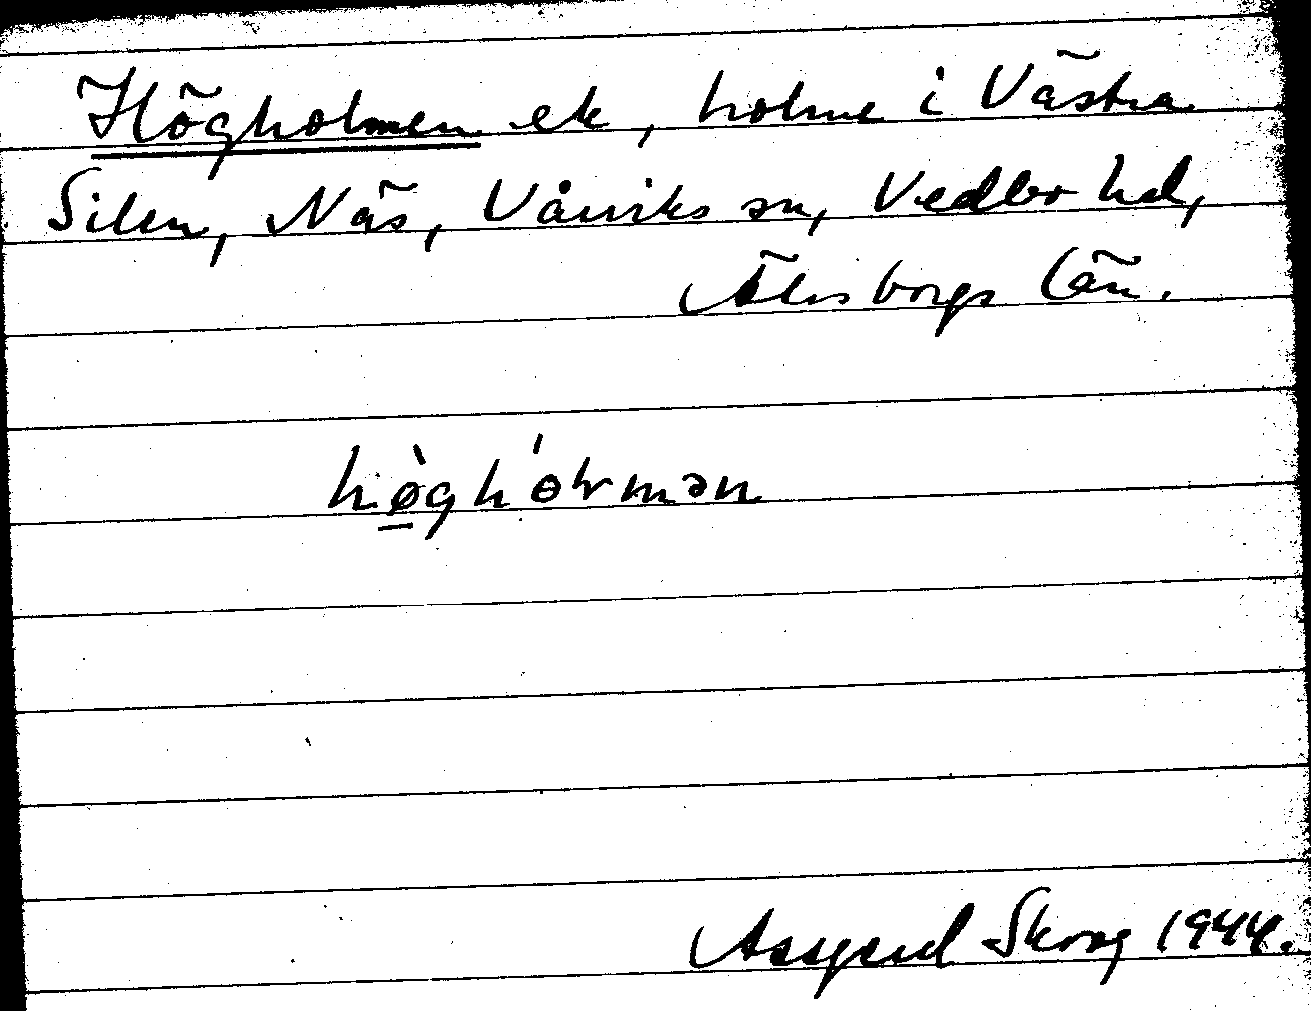 Högholmen ek, holme i Västra
Silen, Näs, Vårviks sn, Vedbo hd,
Älvsborgs län.
hø̀ghólmən
Assgerd Skog 1944.